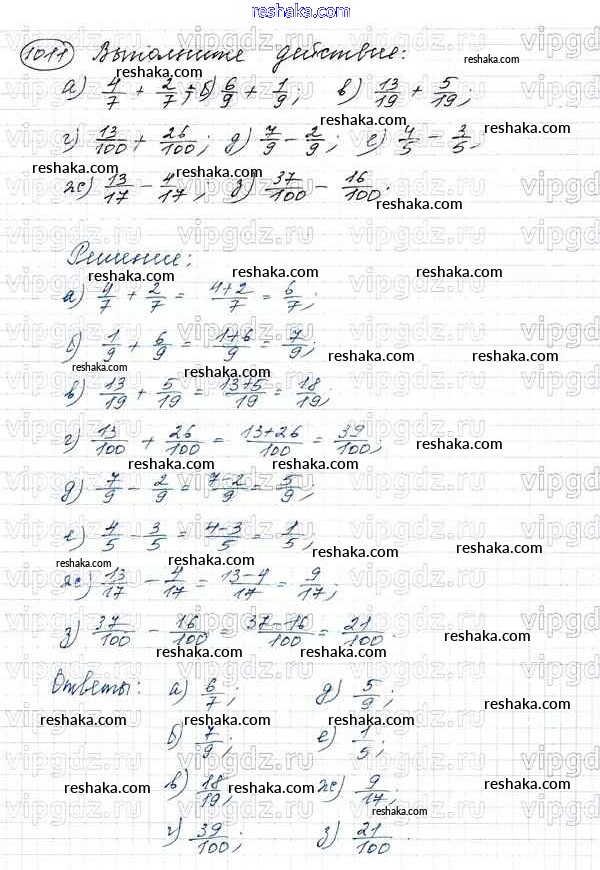 reshaka.com
1011 Выполните действие:
а) 4/7 + 2/7; б) 6/9 + 1/9; в) 13/19 + 5/19;
г) 13/100 + 26/100; д) 7/9 - 2/9; е) 4/5 - 3/5;
ж) 13/17 - 4/17; з) 37/100 - 16/100.
Решение:
а) 4/7 + 2/7 = 4+2/7 = 6/7;
б) 1/9 + 6/9 = 1+6/9 = 7/9;
в) 13/19 + 5/19 = 13+5/19 = 18/19;
г) 13/100 + 26/100 = 13+26/100 = 39/100;
д) 7/9 - 2/9 = 7-2/9 = 5/9;
е) 4/5 - 3/5 = 4-3/5 = 1/5;
ж) 13/17 - 4/17 = 13-4/17 = 9/17;
з) 37/100 - 16/100 = 37-16/100 = 21/100.
Ответы: а) 6/7; д) 5/9;
б) 7/9; е) 1/5;
в) 18/19; ж) 9/17;
г) 39/100; з) 21/100.
vipgdz.ru